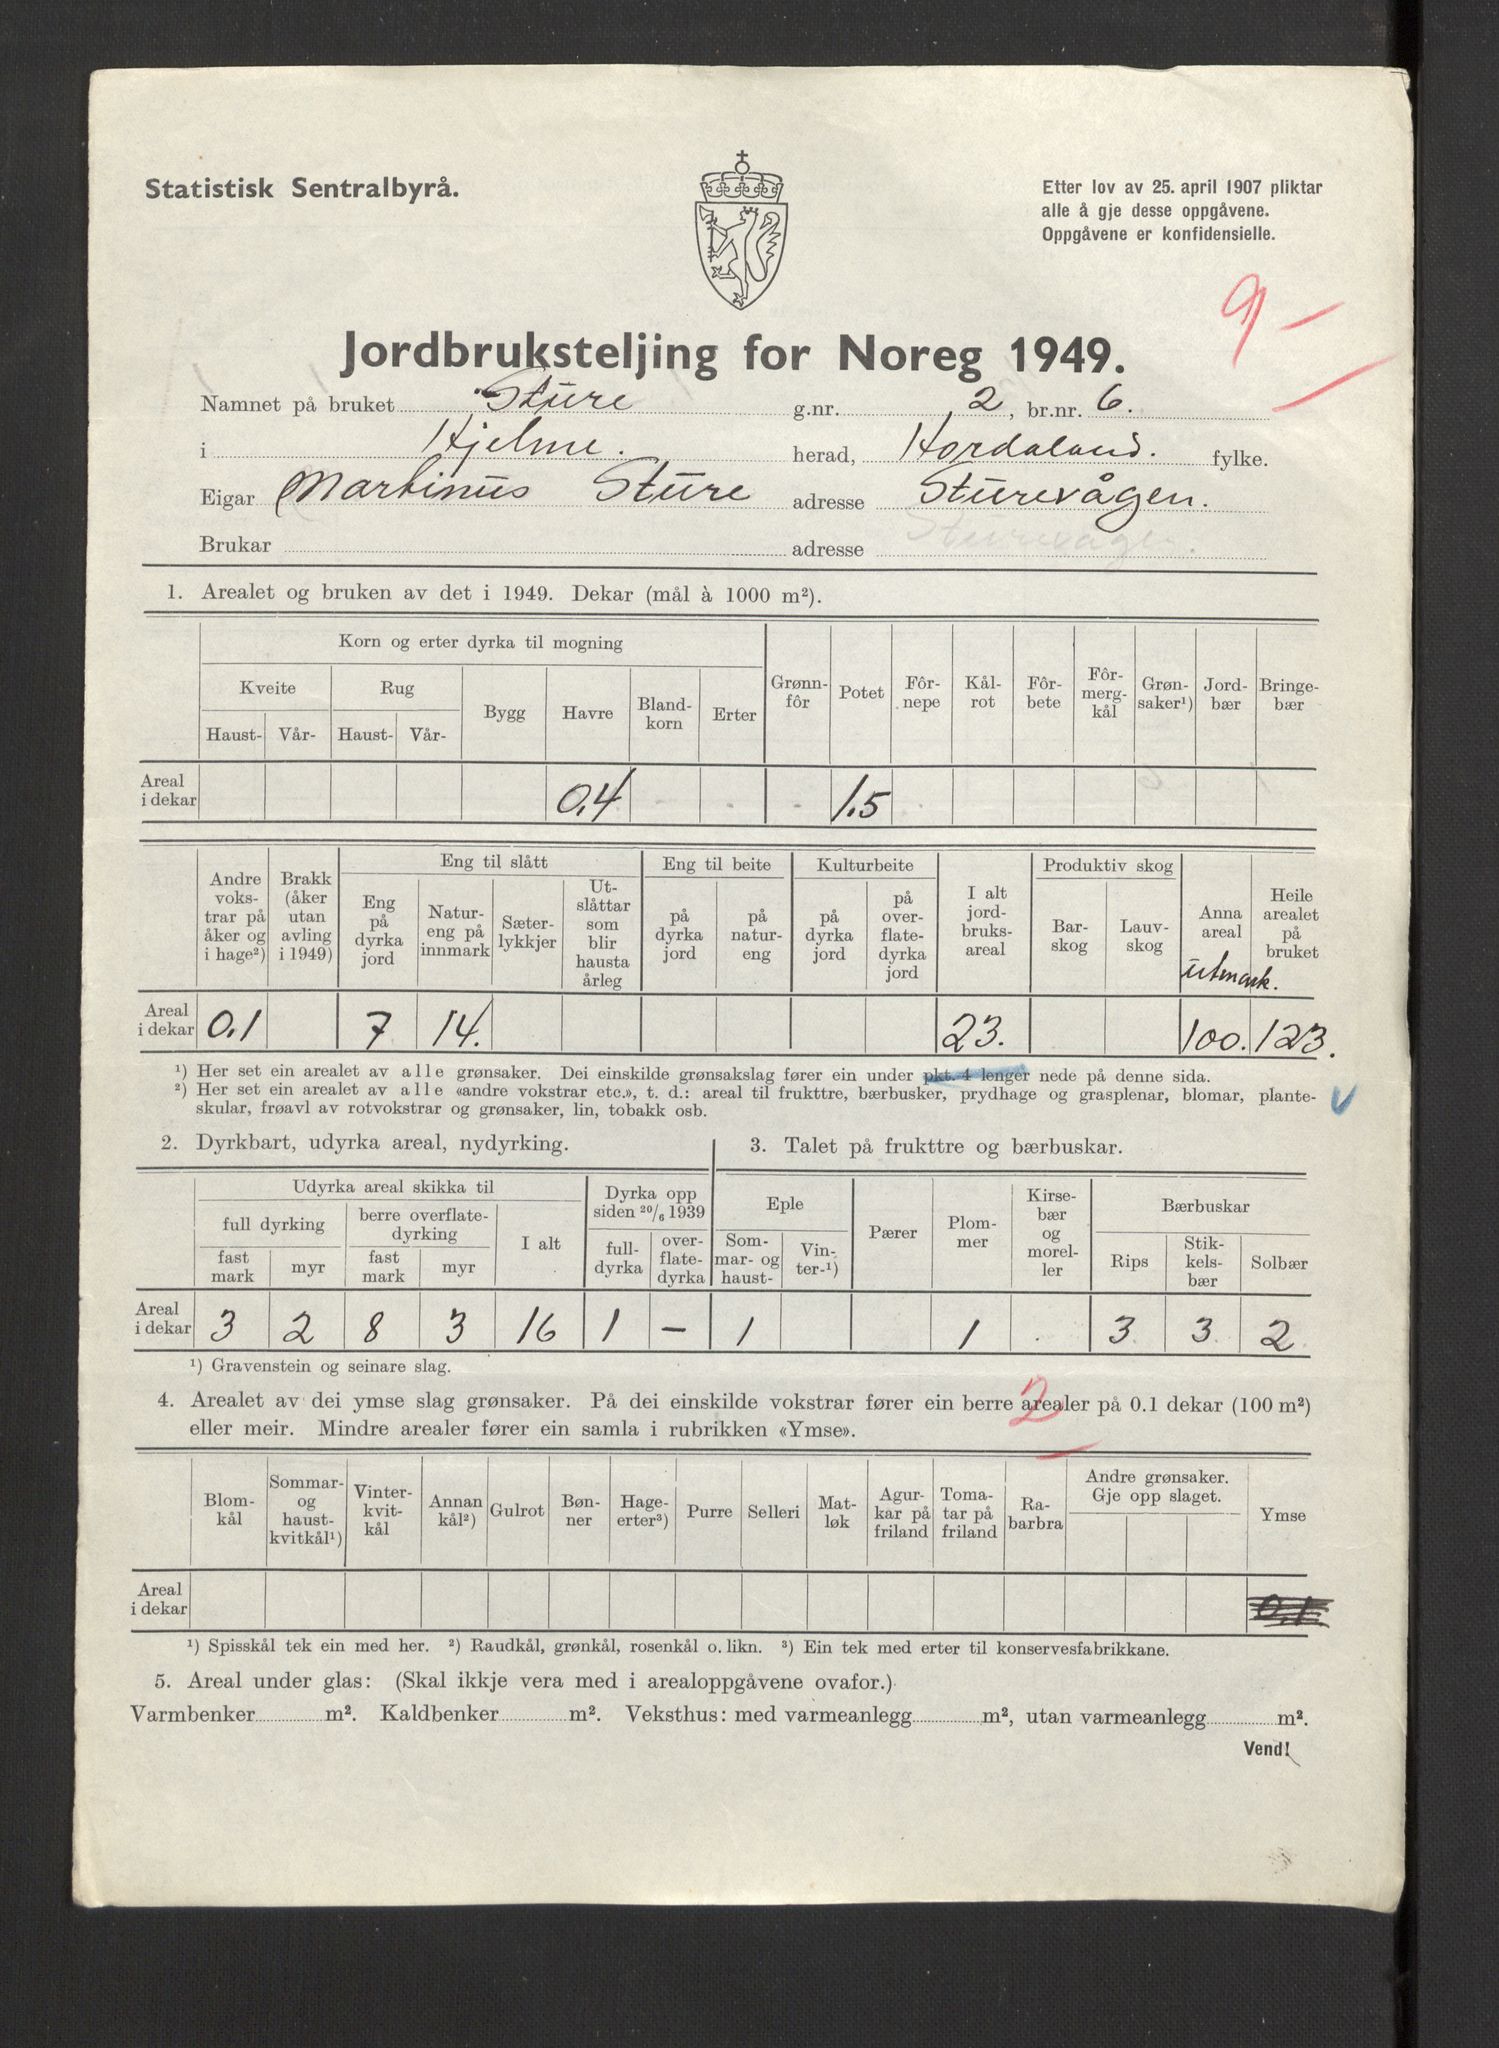 Statistisk Sentralbyrå.
Etter lov av 25. april 1907 pliktar
alle å gje desse oppgåvene.
Oppgåvene er konfidensielle.
9
Jordbruksteljing for Noreg 1949.
Namnet på bruket Sture g.nr. 2, br.nr. 6.
i Hjelme. herad, Hordaland. fylke.
Eigar Martinus Sture adresse Sturevågen.
Brukar adresse Sturevågen.
1. Arealet og bruken av det i 1949. Dekar (mål à 1000 m²).
Korn og erter dyrka til mogning
Kveite Rug Bygg Havre Bland-korn Erter Grønn-fôr Potet Fôr-nepe Kål-rot Fôr-bete Fôr-merg-kål Grøn-saker¹) Jord-bær Bringe-bær
Haust- Vår- Haust- Vår-
Areal i dekar 0,4 1,5
Andre voks-trar på åker og i hage²) Brakk (åker utan avling i 1949) Eng til slått Eng til beite Kulturbeite I alt jord-bruks-areal Produktiv skog Anna areal utmark. Heile arealet på bruket
Eng på dyrka jord Natur-eng på innmark Sæter-lykkjer Ut-slåttar som blir hausta årleg på dyrka jord på natur-eng på dyrka jord på over-flate-dyrka jord Bar-skog Lauv-skog
Areal i dekar 0,1 7 14. 23. 100. 123.
¹) Her set ein arealet av alle grønsaker. Dei einskilde grønsakslag fører ein under pkt. 4 lenger nede på denne sida.
²) Her set ein arealet av alle «andre vokstrar etc.», t. d.: areal til frukttre, bærbusker, prydhage og grasplenar, blomar, plante-
skular, frøavl av rotvokstrar og grønsaker, lin, tobakk osb.
2. Dyrkbart, udyrka areal, nydyrking.
3. Talet på frukttre og bærbuskar.
Udyrka areal skikka til Dyrka opp siden 20/6 1939 Eple Pærer Plom-mer Kirse-bær og morel-ler Bærbuskar
full dyrking berre overflate-dyrking I alt full-dyrka over-flate-dyrka Som-mar- og haust- Vin-ter-¹) Rips Stik-kels-bær Solbær
fast mark myr fast mark myr
Areal i dekar 3 2 8 3 16 1 – 1 1 3 3 2
¹) Gravenstein og seinare slag.
4. Arealet av dei ymse slag grønsaker. På dei einskilde vokstrar fører ein berre arealer på 0.1 dekar (100 m²)
eller meir. Mindre arealer fører ein samla i rubrikken «Ymse».
2
Blom-kål Sommar- og haust-kvitkål¹) Vinter-kvit-kål Annan kål²) Gulrot Bøn-ner Hage-erter³) Purre Selleri Mat-løk Agur-kar på friland Toma-tar på friland Ra-barbra Andre grønsaker. Gje opp slaget. Ymse
Areal i dekar 0,1
¹) Spisskål tek ein med her. ²) Raudkål, grønkål, rosenkål o. likn. ³) Ein tek med erter til konservesfabrikkane.
5. Areal under glas: (Skal ikkje vera med i arealoppgåvene ovafor.)
Varmbenker m². Kaldbenker m². Veksthus: med varmeanlegg m², utan varmeanlegg m².
Vend!